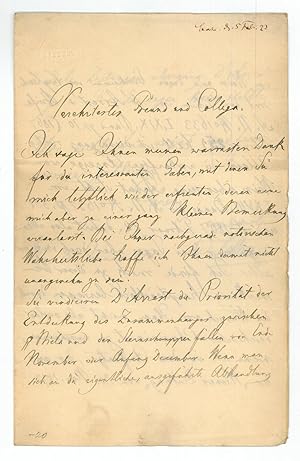 5 Feb. 22
Verehrtester Freund und College.
Ich sage Ihnen meinen wärmsten Dank
für die interessanten Gaben, mit denen Sie
mich letztlich wieder erfreuten, deren eine
mich aber zu einer ganz kleinen Bemerkung
veranlasst. Bei Ihrer notorischen
Wahrheitsliebe hoffe ich Ihnen damit nicht
unangenehm zu sein.
Sie vindicieren D'Arrest die Priorität der
Entdeckung des Zusammenhanges zwischen
Biela und den Sternschnuppenfällen von Ende
November oder Anfang December. Wenn man
sich an die eigentliche, ausgeführte Abhandlung